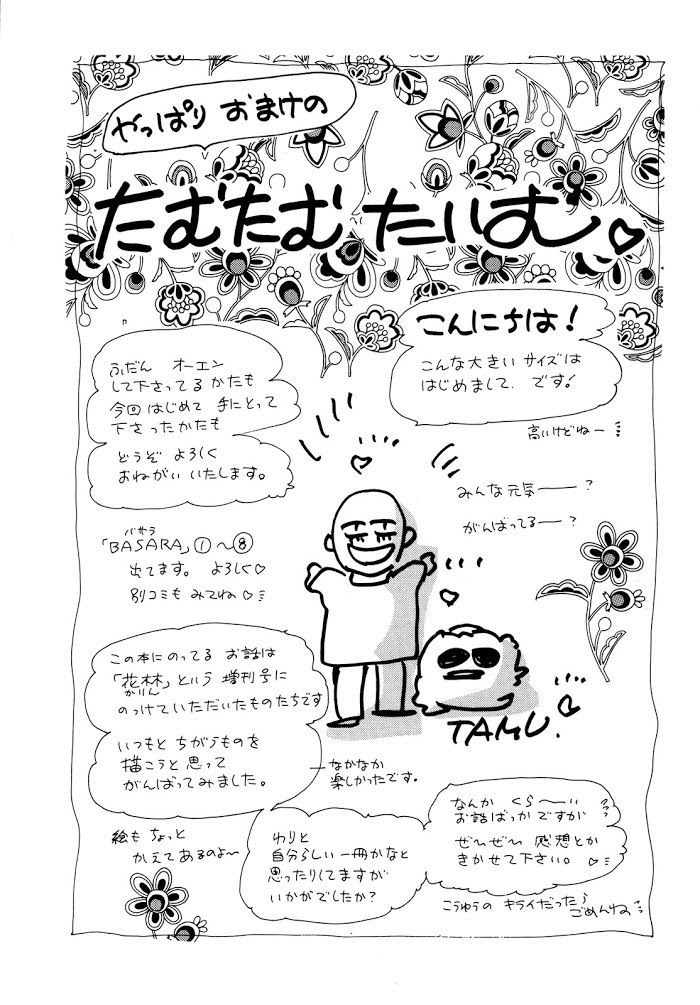 やっぱり おまけの
たむたむ たいむ♡
こんにちは!
こんな大きいサイズは
はじめまして.です!
高いけどねー
ふだん オーエン
して下さってるかたも
今回はじめて 手にとって
下さったかたも
どうぞ よろしく
おねがいいたします。
みんな元気――?
がんばってるー?
バサラ
「BASARA」①〜⑧
出てます。 よろしく♡
別コミも みてね♡
この本にのってる お話は
「花林」という 増刊号に
かりん
のっけていただいたものたちです
いつもと ちがうものを
描こうと思って
がんばってみました。
なかなか
楽しかったです。
TAMU.
絵も ちょっと
かえてあるのよ〜
わりと
自分らしい一冊かなと
思ったりしてますが
いかがでしたか?
なんか くら〜い
お話ばっかですが
ぜ〜ぜ〜 感想とか
きかせて下さい。♡
こうゆうの キライだったら
ごめんね